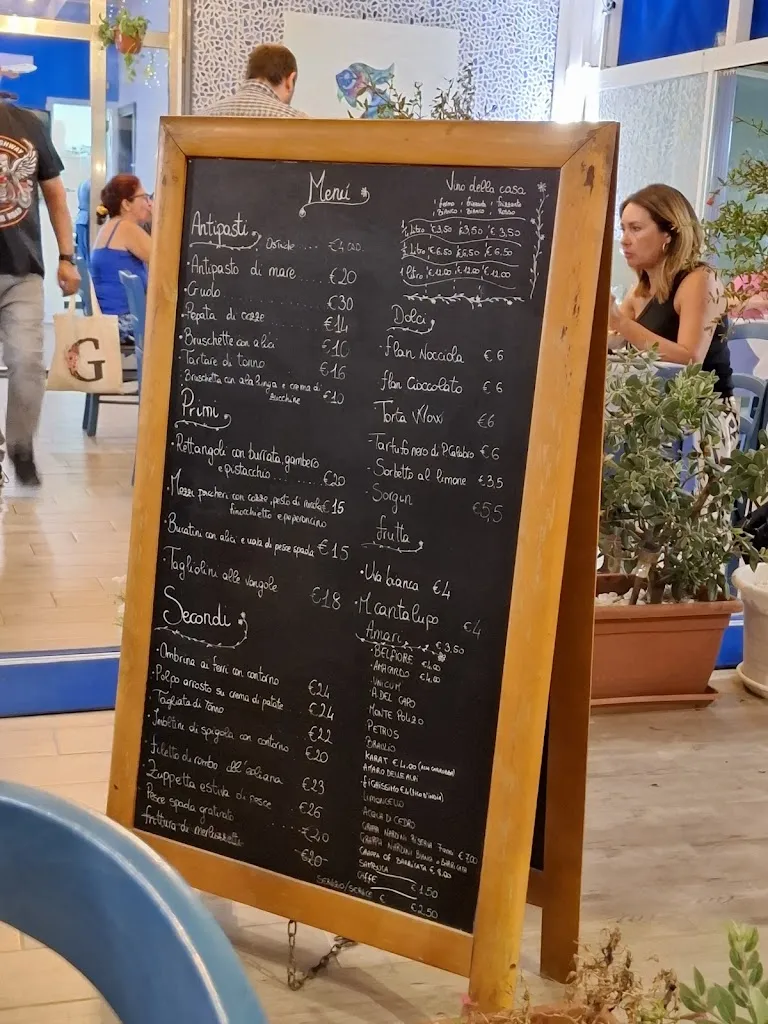 Menù
Antipasti
Ostriche .... €4,00
· Antipasto di mare €20
· Crudo ........ €30
· Pepata di cozze ...... €14
· Bruschette con alici €10
· Tartare di tonno €16
· Bruschetta con alalunga e crema di
zucchine €10
Primi
· Rettangoli con burrata, gambero
e pistacchio ........ €20
· Mezzi paccheri con cozze, pesto di
finocchietto e peperoncino €15
· Bucatini con alici e uova di pesce spada €15
· Tagliolini alle vongole €18
Secondi
· Ombrina ai ferri con contorno €24
· Polpo arrosto su crema di patate €24
· Tagliata di Tonno €22
· Involtini di spigola con contorno €20
· Filetto di rombo all'eoliana €23
· Zuppetta estiva di pesce €26
Pesce spada gratinato €20
frittura di merluzzetti €20
Vino della casa
fermo frizzante frizzante
Bianco Bianco Rosso
1/4 litro €3,50 €3,50 €3,50
1/2 litro €6,50 €6,50 €6,50
1 litro €12,00 €12,00 €12,00
Dolci
· flan Nocciola €6
· flan Cioccolato €6
· Torta Wow €6
· Tartufo nero di P. Calabro €6
· Sorbetto al limone €3,5
· Sorgin €5,5
frutta
· Uva bianca €4
· M. cantalupo €4
Amari € 3,50
· BELFIORE €4,00
· AMACARDO €4,00
· UNICUM
· A. DEL CAPO
· MONTE POLIZO
PETROS
BRAULIO
KARAT €4,00
AMARO DELLE ALPI
FICHISSIMO €4 (FICO D'INDIA)
LIMONCELLO
ACQUA DI CEDRO
GRAPPA NARDINI RISERVA €7,00
GRAPPA NARDINI BIANCA o BARRICATA
GRAPPA OF BARRICATA €8,00
SAMBUCA
CAFFE € 1.50
SERVIZIO/SERVICE € € 2,50
HIGHWAY
G